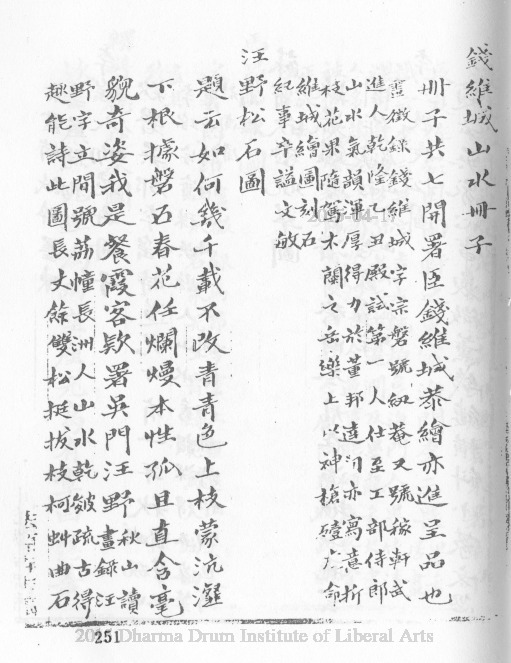 錢維城山水冊子
冊子共七開署臣錢維城恭繪亦進呈品也
舊徵錄錢維城字宗磐號紉菴又號稼軒武
進人乾隆乙丑殿試第一人仕至工部侍郎
山水氣韻渾厚得力於董邦達間亦寫意折
枝花果隨駕木蘭之岳樂上以神槍殪虎命
維城繪圖刻石
紀事卒謚文敏
汪野松石圖
題云如何幾千載不改青青色上枝蒙沆瀣
下根據磐石春花任爛熳本性孤且直含毫
貌奇姿我是餐霞客款署吳門汪野
秋山讀
畫錄汪
野字立間號荔幢長洲人山水乾皴疏古得
趣能詩此圖長丈餘雙松挺拔枝柯虬曲石
251
Dharma Drum Institute of Liberal Arts